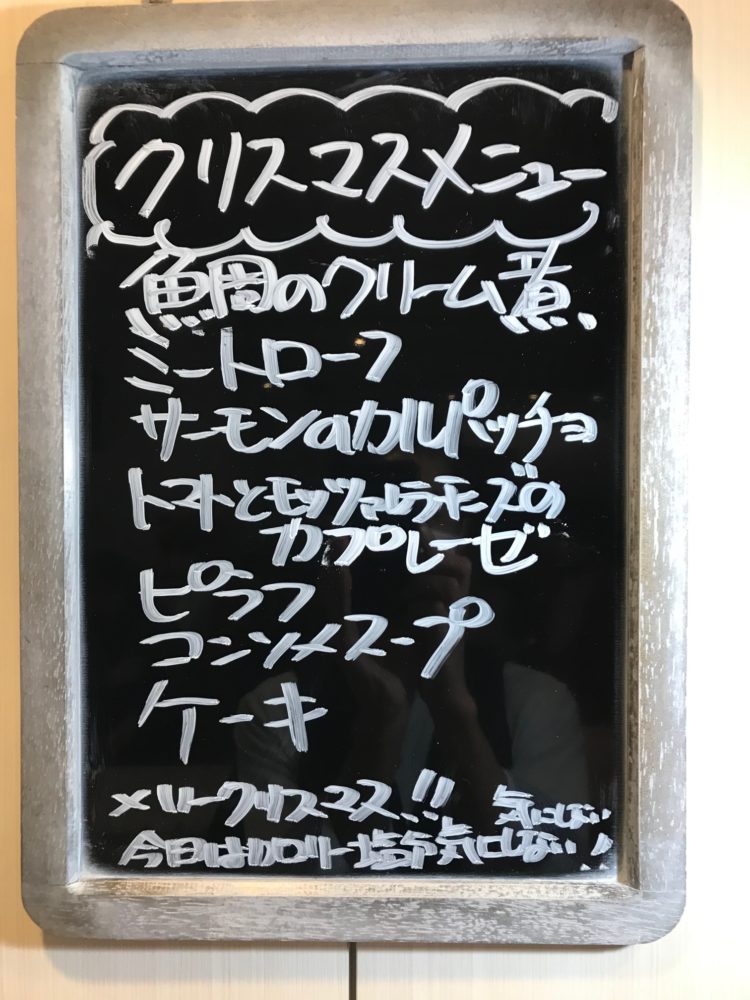 クリスマスメニュー
鯛のクリーム煮
ミートローフ
サーモンのカルパッチョ
トマトとモッツァレラチーズの
カプレーゼ
ピラフ
コンソメスープ
ケーキ
メリークリスマス!!
気にしない
今日はカロリー塩分気にしない!